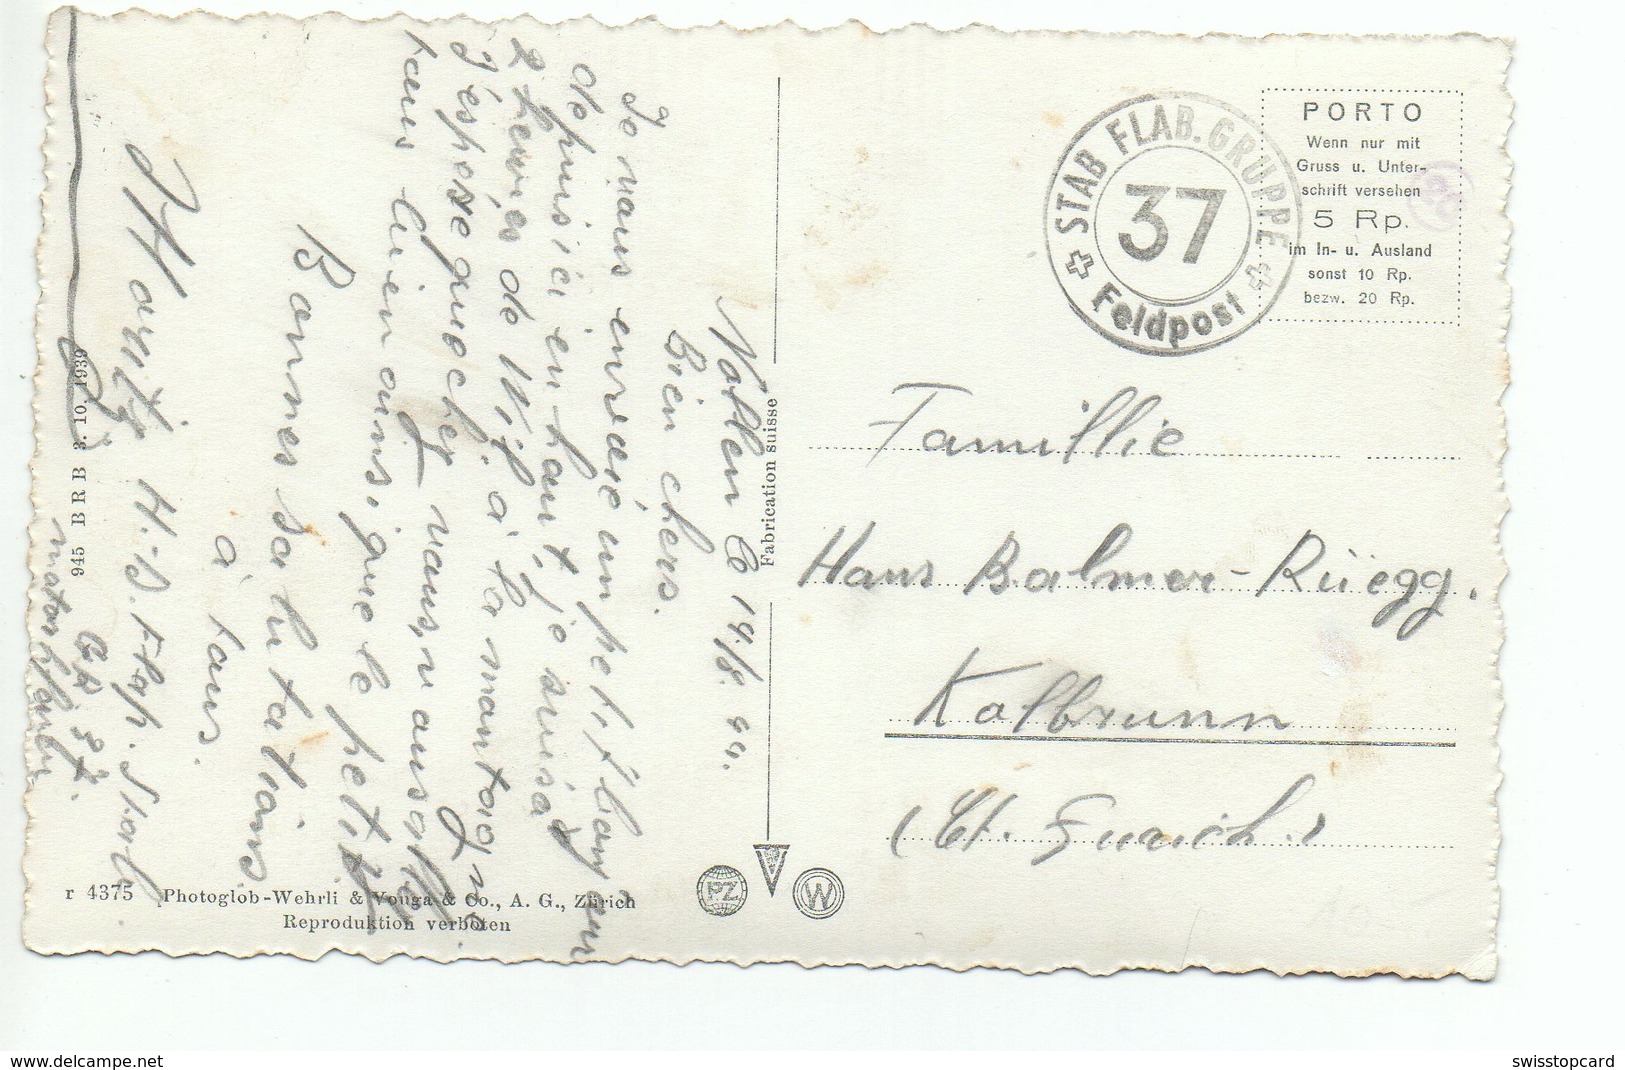 Notlen le 19/8. 40.
Bien chers.
Je vous envoie un petit bonjour
depuis ici en haut, je suis à
2 heures de Wil à la montagne
J'espère que chez vous, va aussi
tous bien ains, que le petit
Bonnes salutations
à tous.
H.-D. Flab. Stab.
37.
PORTO
Wenn nur mit
Gruss u. Unter-
schrift versehen
5 Rp.
im In- u. Ausland
sonst 10 Rp.
bezw. 20 Rp.
STAB FLAB. GRUPPE
37
Feldpost
Famillie
Hans Balmer-Rüegg.
Kalbrunn
(Ct. Zurich.)
Fabrication suisse
945 B R B 3. 10. 1939
r 4375 Photoglob-Wehrli & Vouga & Co., A. G., Zürich
Reproduktion verboten
PZ
W
www.delcampe.net
swisstopcard